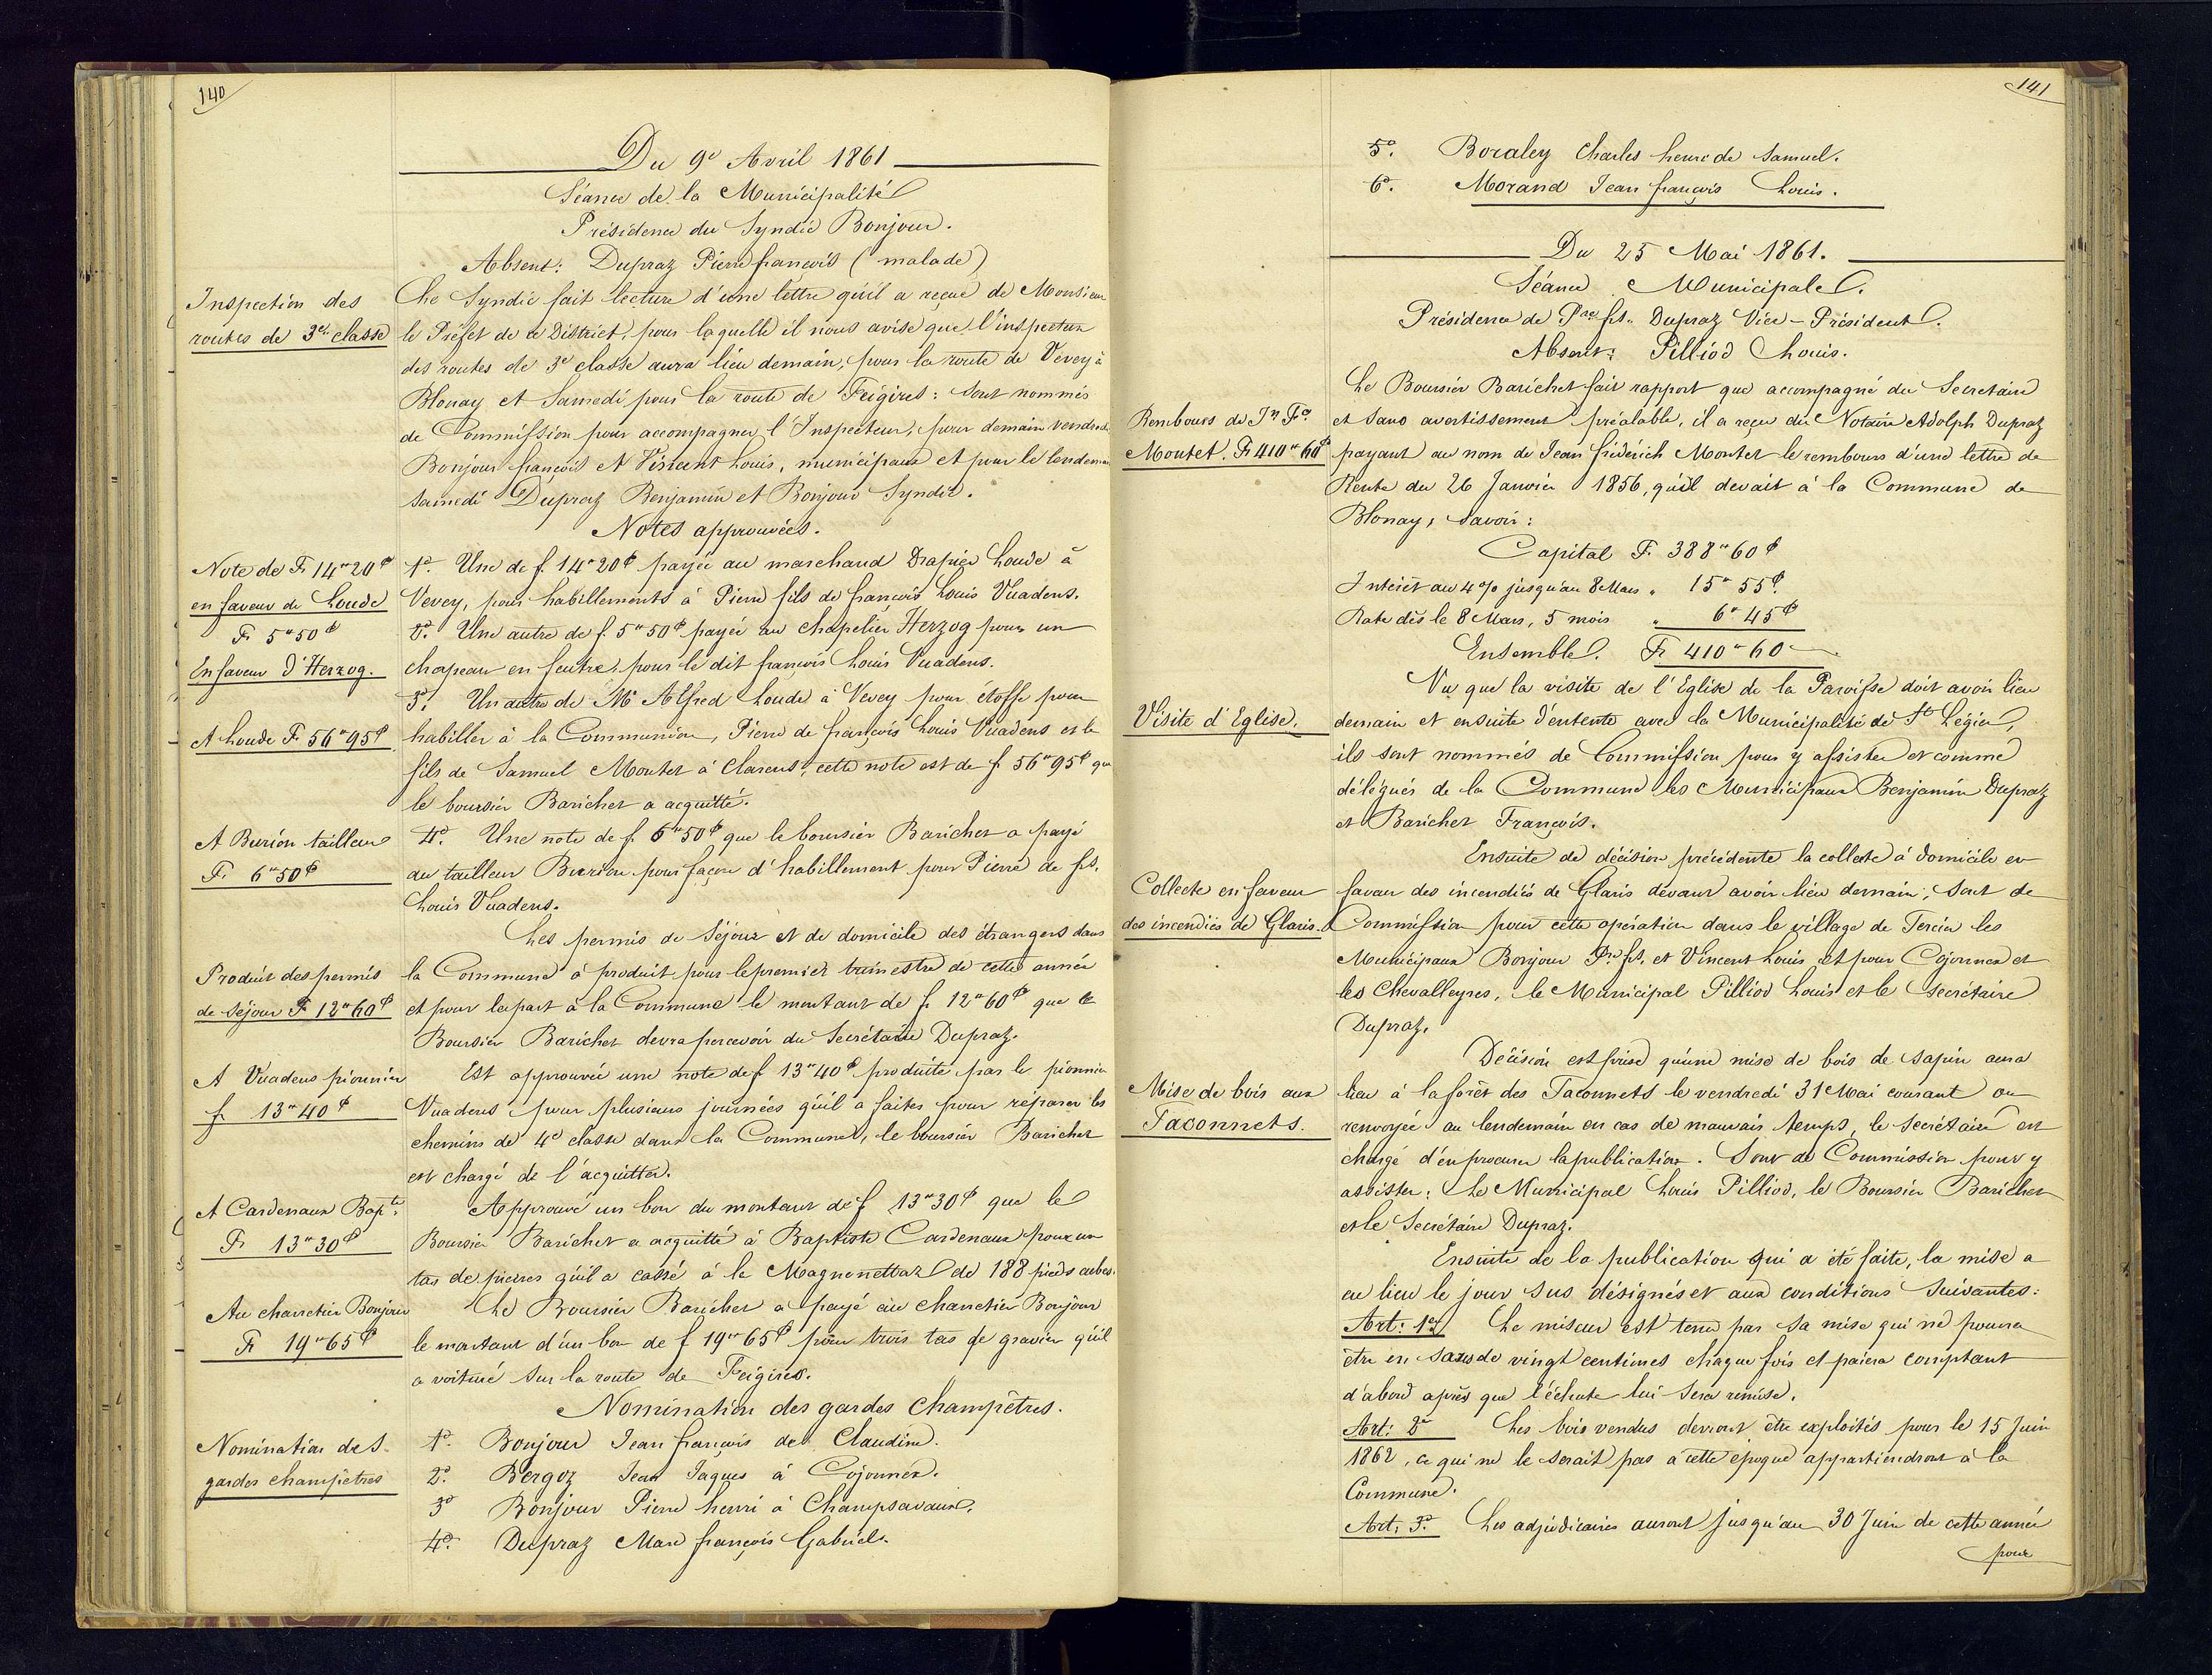 140
Du 9e Avril 1861
Séance de la Municipalité
Présidence du Syndic Bonjour.
Absent: Dupraz Pierre françois (malade)
Inspection des
routes de 3e classe
Le Syndic fait lecture d'une lettre qu'il a reçue de Monsieur
le Préfet de ce District, pour laquelle il nous avise que l'inspection
des routes de 3e classe aura lieu demain, pour la route de Vevey à
Blonay et Samedi pour la route de Feigires: sont nommés
de Commission pour accompagner l'Inspecteur, pour demain vendredi
Bonjour françois et Vincent Louis, municipaux et pour le lendemain
samedi Dupraz Benjamin et Bonjour Syndic.
Notes approuvées.
Note de Fr 14"20c
en faveur de Loude
1o. Une de f. 14"20c payée au marchand Drapier Loude à
Vevey, pour habillements à Pierre fils de françois Louis Vuadens.
Fr 5"50c
En faveur d'Herzog.
2o. Une autre de f. 5"50c payée au chapelier Herzog pour un
chapeau en feutre, pour le dit françois Louis Vuadens.
A Loude Fr 56"95c
3o. Un autre de Mr Alfred Loude à Vevey pour étoffe pour
habiller à la Communion, Pierre de françois Louis Vuadens et le
fils de Samuel Moutet à Clarens, cette note est de f. 56"95c que
le boursier Barichet a acquitté.
A Burion tailleur
Fr. 6"50c
4o. Une note de f. 6"50c que le boursier Barichet a payé
au tailleur Burion pour façon d'habillement pour Pierre de fs.
Louis Vuadens.
Produit des permis
de séjour Fr 12"60c
Les permis de Séjour et de domicile des étrangers dans
la Commune a produit pour le premier trimestre de cette année
et pour la part à la Commune le montant de f. 12"60c que le
Boursier Barichet devra percevoir du Secrétaire Dupraz.
A Vuadens pionnier
f. 13"40c
Est approuvée une note de f 13"40c produite par le pionnier
Vuadens pour plusieurs journées qu'il a faites pour réparer les
chemins de 4e classe dans la Commune, le boursier Barichet
est chargé de l'acquitter.
A Cardenaux Bapte.
Fr 13"30c
Approuvé un bon du montant de f 13"30c que le
Boursier Barichet a acquitté à Baptiste Cardenaux pour un
tas de pierres qu'il a cassé à la Magnenettaz de 188 pieds cubes.
Au charretier Bonjour
Fr 19"65c
Le Boursier Barichet a payé au charretier Bonjour
le montant d'un bon de f 19"65c pour trois tas de gravier qu'il
a voituré sur la route de Feigires.
Nomination des gardes Champêtres.
Nomination des
gardes champêtres
1o. Bonjour Jean françois de Claudine.
2o. Bergoz Jean Jaques à Cojonnex.
3o Bonjour Pierre henri à Champsavaux.
4o. Dupraz Marc françois Gabriel.
141
5o. Boraley Charles henri de Samuel.
6o. Morand Jean françois Louis.
Du 25 Mai 1861.
Séance Municipale.
Présidence de Pre fs. Dupraz Vice-Président.
Absent: Pilliod Louis.
Rembours de Jn Fc
Moutet. Fr 410"60c
Le Boursier Barichet fait rapport que accompagné du Secretaire
et sans avertissement préalable, il a reçu du Notaire Adolph Dupraz
payant au nom de Jean fréderich Moutet le rembours d'une lettre de
Rente du 26 Janvier 1856, qu'il devait à la Commune de
Blonay, Savoir:
Capital Fr. 388"60c
Intérêt au 4% jusqu'au 8 Mars " 15"55c.
Rate dès le 8 Mars, 5 mois " 6"45c
Ensemble. Fr 410"60
Visite d'Eglise.
Vu que la visite de l'Eglise de la Paroisse doit avoir lieu
demain et ensuite d'entente avec la Municipalité de St Légier,
ils sont nommés de Commission pour y assister et comme
délégués de la Commune les Municipaux Benjamin Dupraz
et Barichet François.
Collecte en faveur
des incendiés de Glaris.
Ensuite de décision précédente la collecte à domicile en
faveur des incendiés de Glaris devant avoir lieu demain; sont de
Commission pour cette opération dans le village de Tercier les
Municipaux Bonjour Pre fs. et Vincent Louis et pour Cojonnex et
les Chevalleyres, le Municipal Pilliod Louis et le Secrétaire
Dupraz.
Mise de bois aux
Taconnets.
Décision est prise qu'une mise de bois de sapin aura
lieu à la forêt des Taconnets le vendredi 31 Mai courant ou
renvoyée au lendemain en cas de mauvais temps, le Secrétaire est
chargé d'en procurer la publication. Sont de Commission pour y
assister: Le Municipal Louis Pilliod, le Boursier Barichet
et le Secrétaire Dupraz.
Ensuite de la publication qui a été faite, la mise a
eu lieu le jour sus désigné et aux conditions suivantes:
Art: 1er Le miseur est tenu par sa mise qui ne pourra
être en sus de vingt centimes chaque fois et paiera comptant
d'abord après que l'échute lui sera remise.
Art: 2e Les bois vendus devront être exploités pour le 15 Juin
1862, ce qui ne le serait pas à cette époque appartiendront à la
Commune.
Art: 3e. Les adjudicaires auront jusqu'au 30 Juin de cette année
pour